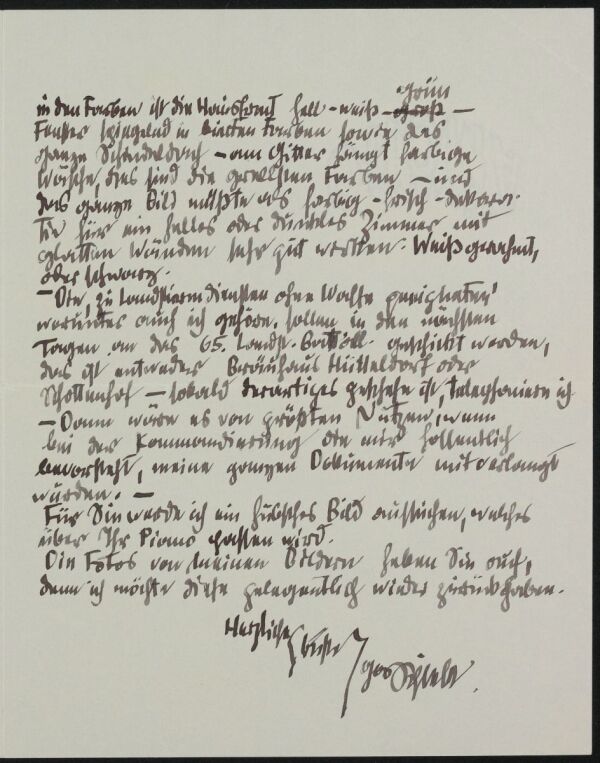 grün
in den Farben ist die Hausfront hell-weiß-groß —
Fenster spiegelnd in bunten Farben sowie das
ganze Schindeldach – am Gitter hängt farbige
Wäsche, das sind die grellsten Farben – und
das ganze Bild müßte als farbig-frisch-dekora-
tiv für ein helles oder dunkles Zimmer mit
glatten Wänden sehr gut wirken. Weiß gerahmt,
oder schwarz.
– Die, zu Landsturmdiensten ohne Waffe geeigneten
worunter auch ich gehöre, sollen in den nächsten
Tagen an das 65. Landst. Battoll. geschickt werden,
das ist entweder Bräuhaus Hütteldorf oder
Schottenhof – sobald derartiges geschehn ist, telefoniere ich
– Dann wäre es von größtem Nutzen, wenn
bei der Kommandierung die mir hoffentlich
bevorsteht, meine ganzen Dokumente mitverlangt
würden. —
Für Sie werde ich ein hübsches Bild aussuchen, welches
über Ihr Piano passen wird.
Die Fotos von meinen Bildern haben Sie auch,
denn ich möchte diese gelegentlich wieder zurück haben.
Herzliche Grüße
Egon Schiele.